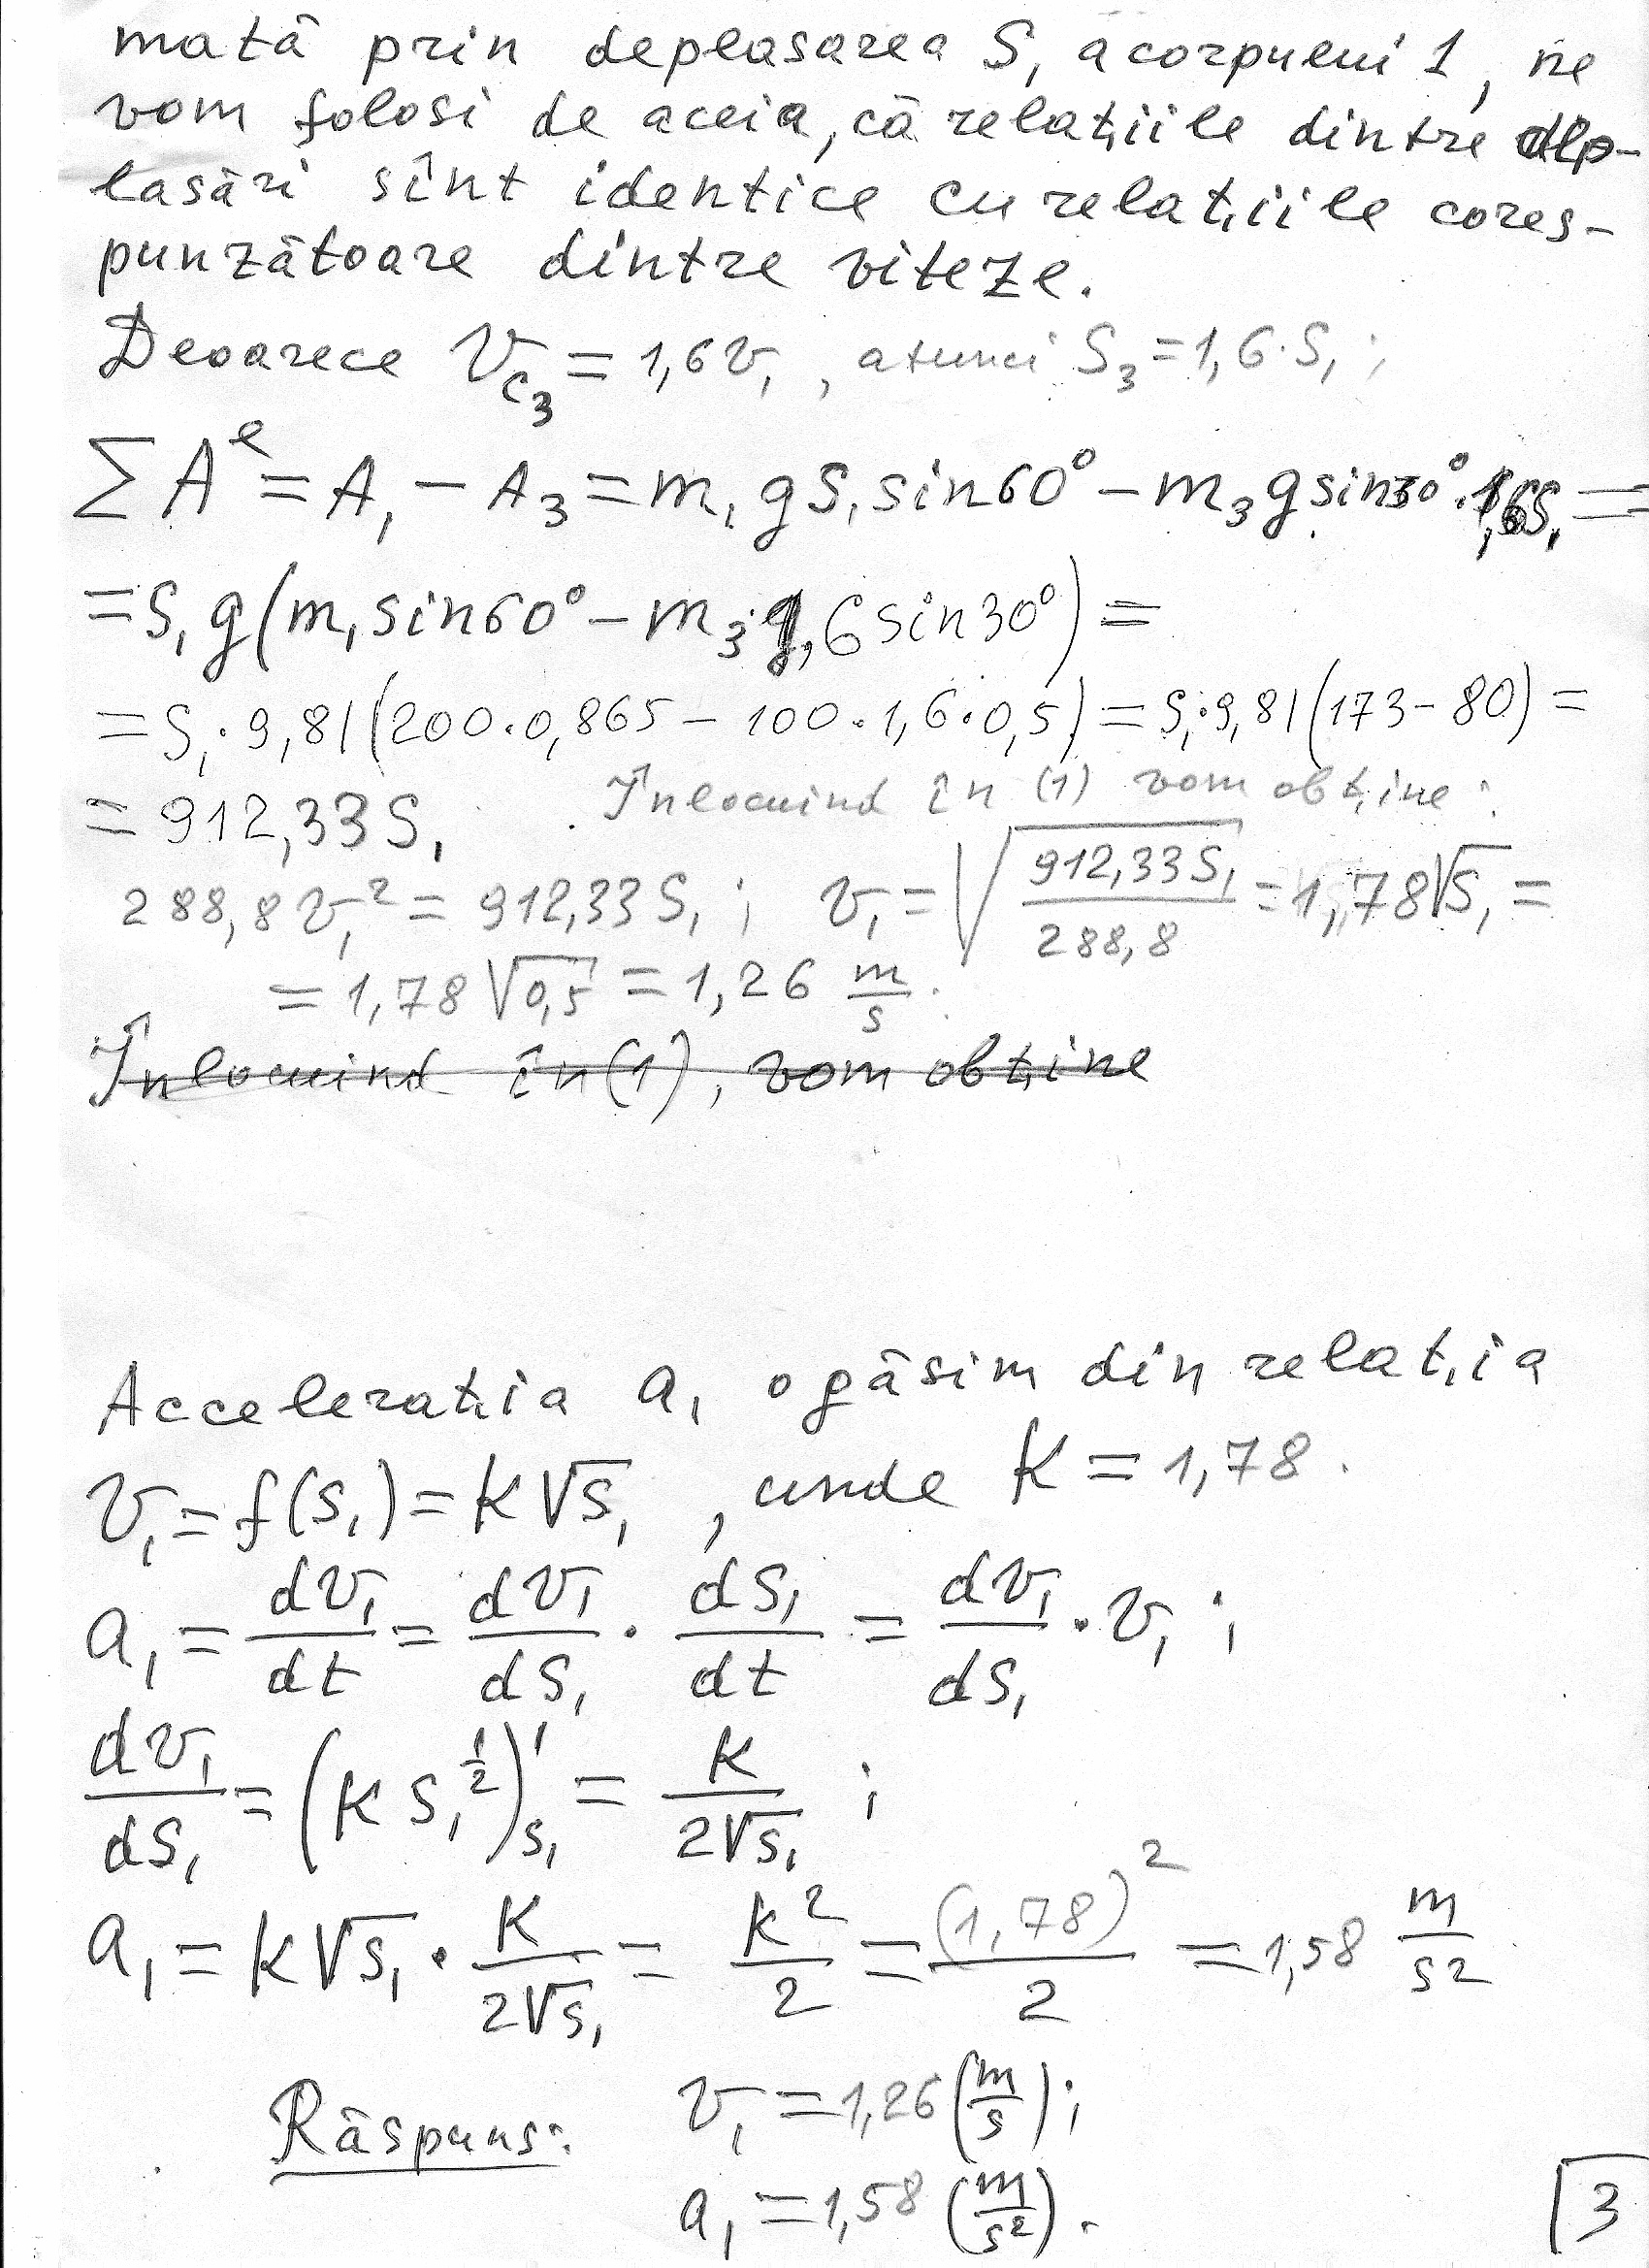 mată prin deplasarea S₁ a corpului 1, ne
vom folosi de aceia, că relațiile dintre dep-
lasări sînt identice cu relațiile cores-
punzătoare dintre viteze.
Deoarece V_C₃ = 1,6v₁, atunci S₃ = 1,6·S₁;
ΣAᵉ = A₁ − A₃ = m₁gS₁sin60° − m₃gsin30°·1,6S₁ =
= S₁g(m₁sin60° − m₃·1,6sin30°) =
= S₁·9,81(200·0,865 − 100·1,6·0,5) = S₁·9,81(173−80) =
= 912,33S₁. Înlocuind în (1) vom obține:
288,8v₁² = 912,33S₁; v₁ = √(912,33S₁/288,8) = 1,78√S₁ =
= 1,78√0,5 = 1,26 m/s.
Înlocuind în (1), vom obține
Accelerația a₁ o găsim din relația
v₁ = f(s₁) = k√s₁, unde k = 1,78.
a₁ = dv₁/dt = dv₁/ds₁ · ds₁/dt = dv₁/ds₁ · v₁;
dv₁/ds₁ = (k s₁^(1/2))'_s₁ = k/(2√s₁);
a₁ = k√s₁ · k/(2√s₁) = k²/2 = (1,78)²/2 = 1,58 m/s²
Răspuns: v₁ = 1,26 (m/s);
a₁ = 1,58 (m/s²).
3